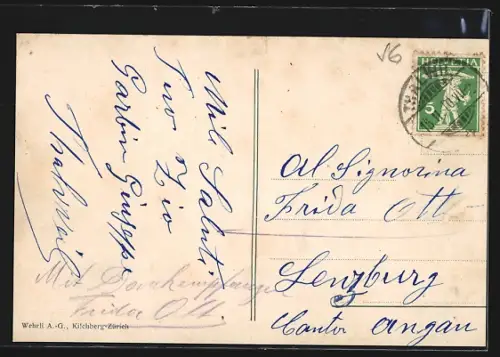 Mille Saluti
Tuo Zio
Garbin Giuseppe
Thalweil
Mit Dank empfangen
Frida Ott
Wehrli A.-G., Kilchberg-Zürich
56
HELVETIA
5
Al Signorina
Frida Ott
Lenzburg
Canton Argau